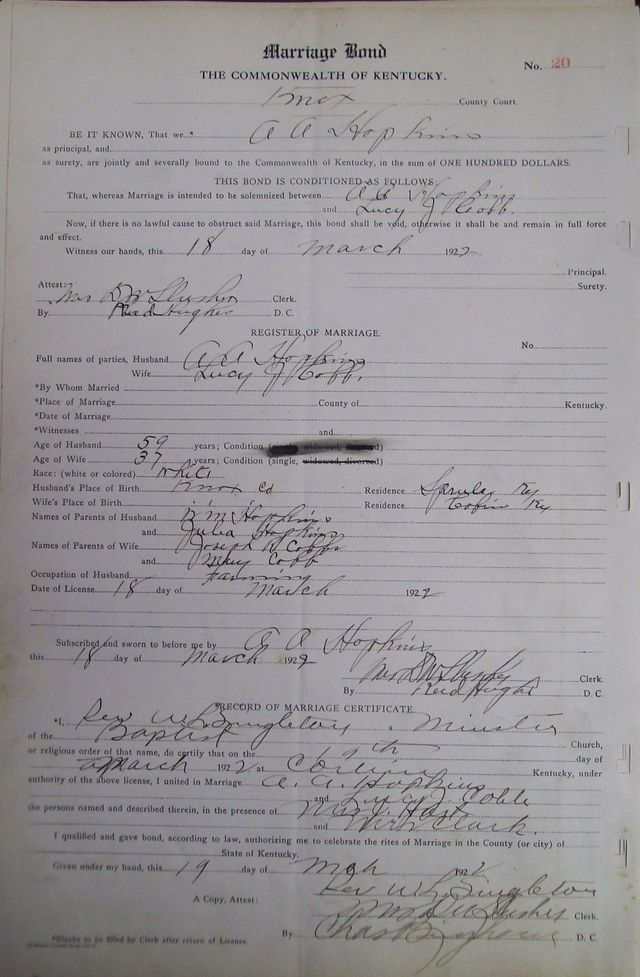 Marriage Bond
No. 20
THE COMMONWEALTH OF KENTUCKY.
Knox County Court.
BE IT KNOWN, That we * A A Hopkins
as principal, and
as surety, are jointly and severally bound to the Commonwealth of Kentucky, in the sum of ONE HUNDRED DOLLARS.
THIS BOND IS CONDITIONED AS FOLLOWS:
That, whereas Marriage is intended to be solemnized between A A Hopkins
and Lucy J Cobb.
Now, if there is no lawful cause to obstruct said Marriage, this bond shall be void, otherwise it shall be and remain in full force
and effect.
Witness our hands, this 18 day of March 1922
Principal.
Surety.
Attest:
Mrs D W Slusher Clerk.
By Reed Hughes D. C.
REGISTER OF MARRIAGE.
No.
Full names of parties, Husband A A Hopkins
Wife Lucy J Cobb.
*By Whom Married
*Place of Marriage County of Kentucky.
*Date of Marriage
*Witnesses and
Age of Husband 59 years; Condition ( widowed, )
Age of Wife 37 years; Condition (single, widowed, divorced)
Race: (white or colored) White
Husband's Place of Birth Knox Co Residence Ky
Wife's Place of Birth Residence Ky
Names of Parents of Husband Hopkins
and Julia Hopkins
Names of Parents of Wife Joseph Cobb
and Cobb
Occupation of Husband Farming
Date of License 18 day of March 1922
Subscribed and sworn to before me by A A Hopkins
this 18 day of March 1922
Mrs D W Slusher Clerk.
By Reed Hughes D. C.
RECORD OF MARRIAGE CERTIFICATE.
*I, Rev W L Singleton, Minister
of the Baptist Church,
or religious order of that name, do certify that on the 19th day of
March 1922 at Corbin Kentucky, under
authority of the above license, I united in Marriage A. A. Hopkins
and Lucy J. Cobb
the persons named and described therein, in the presence of
and Clark.
I qualified and gave bond, according to law, authorizing me to celebrate the rites of Marriage in the County (or city) of
State of Kentucky.
Given under my hand, this 19 day of Mch 1922
Rev W L Singleton
A Copy, Attest: Mrs D W Slusher Clerk.
By Chas Bingham D. C.
*Blanks to be filled by Clerk after return of License.